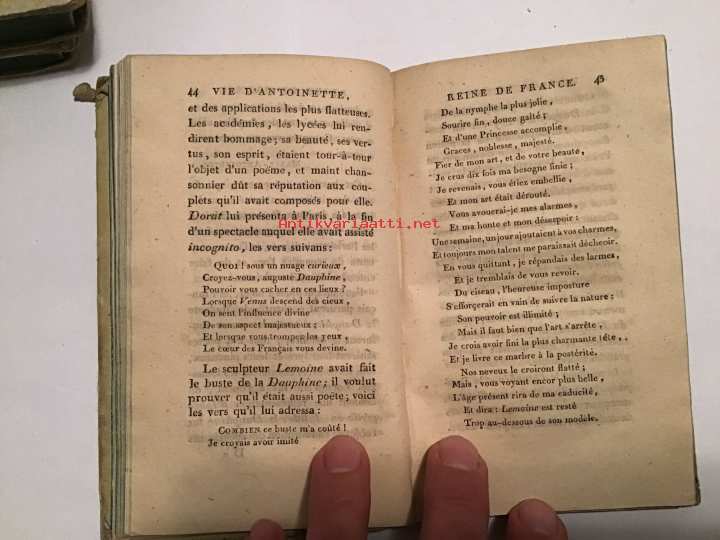 44 VIE D'ANTOINETTE,
et des applications les plus flatteuses.
Les académies, les lycées lui ren-
dirent hommage; sa beauté, ses ver-
tus, son esprit, étaient tour-à-tour
l'objet d'un poëme, et maint chan-
sonnier dût sa réputation aux cou-
plets qu'il avait composés pour elle.
Dorat lui présenta à Paris, à la fin
d'un spectacle auquel elle avait assisté
incognito, les vers suivans:
QUOI! sous un nuage curieux,
Croyez-vous, auguste Dauphine,
Pouvoir vous cacher en ces lieux?
Lorsque Venus descend des cieux,
On sent l'influence divine
De son aspect majestueux:
Et lorsque vous trompez les yeux,
Le cœur des Français vous devine.
Le sculpteur Lemoine avait fait
le buste de la Dauphine; il voulut
prouver qu'il était aussi poëte; voici
les vers qu'il lui adressa:
COMBIEN ce buste m'a coûté!
Je croyais avoir imité
REINE DE FRANCE. 45
De la nymphe la plus jolie,
Sourire fin, douce gaîté;
Et d'une Princesse accomplie,
Graces, noblesse, majesté.
Fier de mon art, et de votre beauté,
Je crus dix fois ma besogne finie;
Je revenais, vous étiez embellie,
Et mon art était dérouté.
Vous avouerai-je mes alarmes,
Et ma honte et mon désespoir:
Une semaine, un jour ajoutaient à vos charmes,
Et toujours mon talent me paraissait déchoir.
En vous quittant, je répandais des larmes,
Et je tremblais de vous revoir.
Du ciseau, l'heureuse imposture
S'efforcerait en vain de suivre la nature:
Son pouvoir est illimité;
Mais il faut bien que l'art s'arrête,
Je crois avoir fini la plus charmante tête,
Et je livre ce marbre à la postérité.
Nos neveux le croiront flatté;
Mais, vous voyant encor plus belle,
L'âge présent rira de ma caducité,
Et dira: Lemoine est resté
Trop au-dessous de son modèle.
Antikvariaatti.net